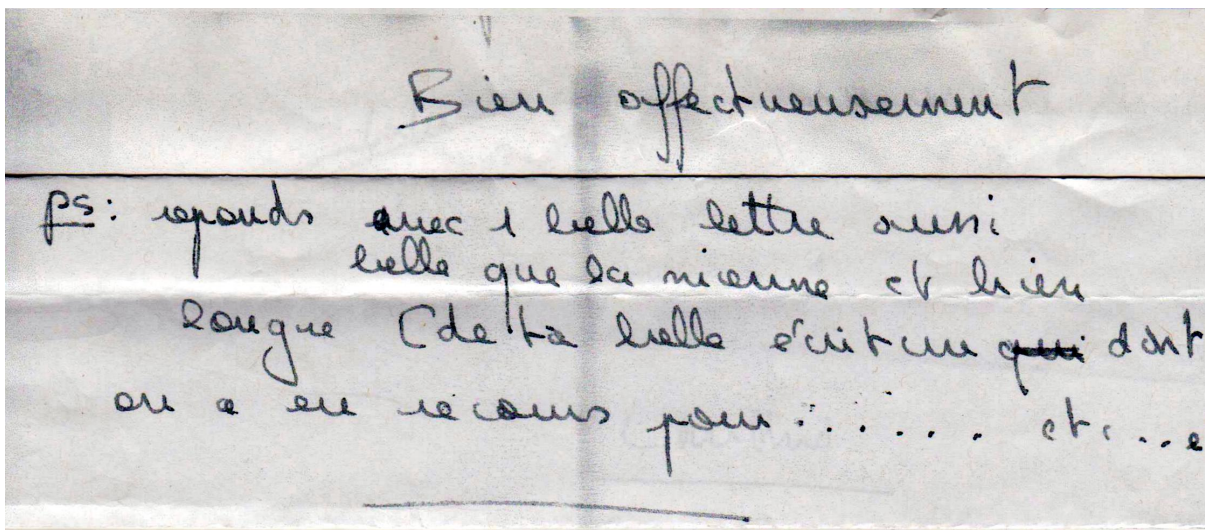 Bien affectueusement
ps: reponds avec 1 belle lettre aussi
belle que la mienne et bien
longue (de ta belle écriture qui dont
on a eu recours pour....... et....